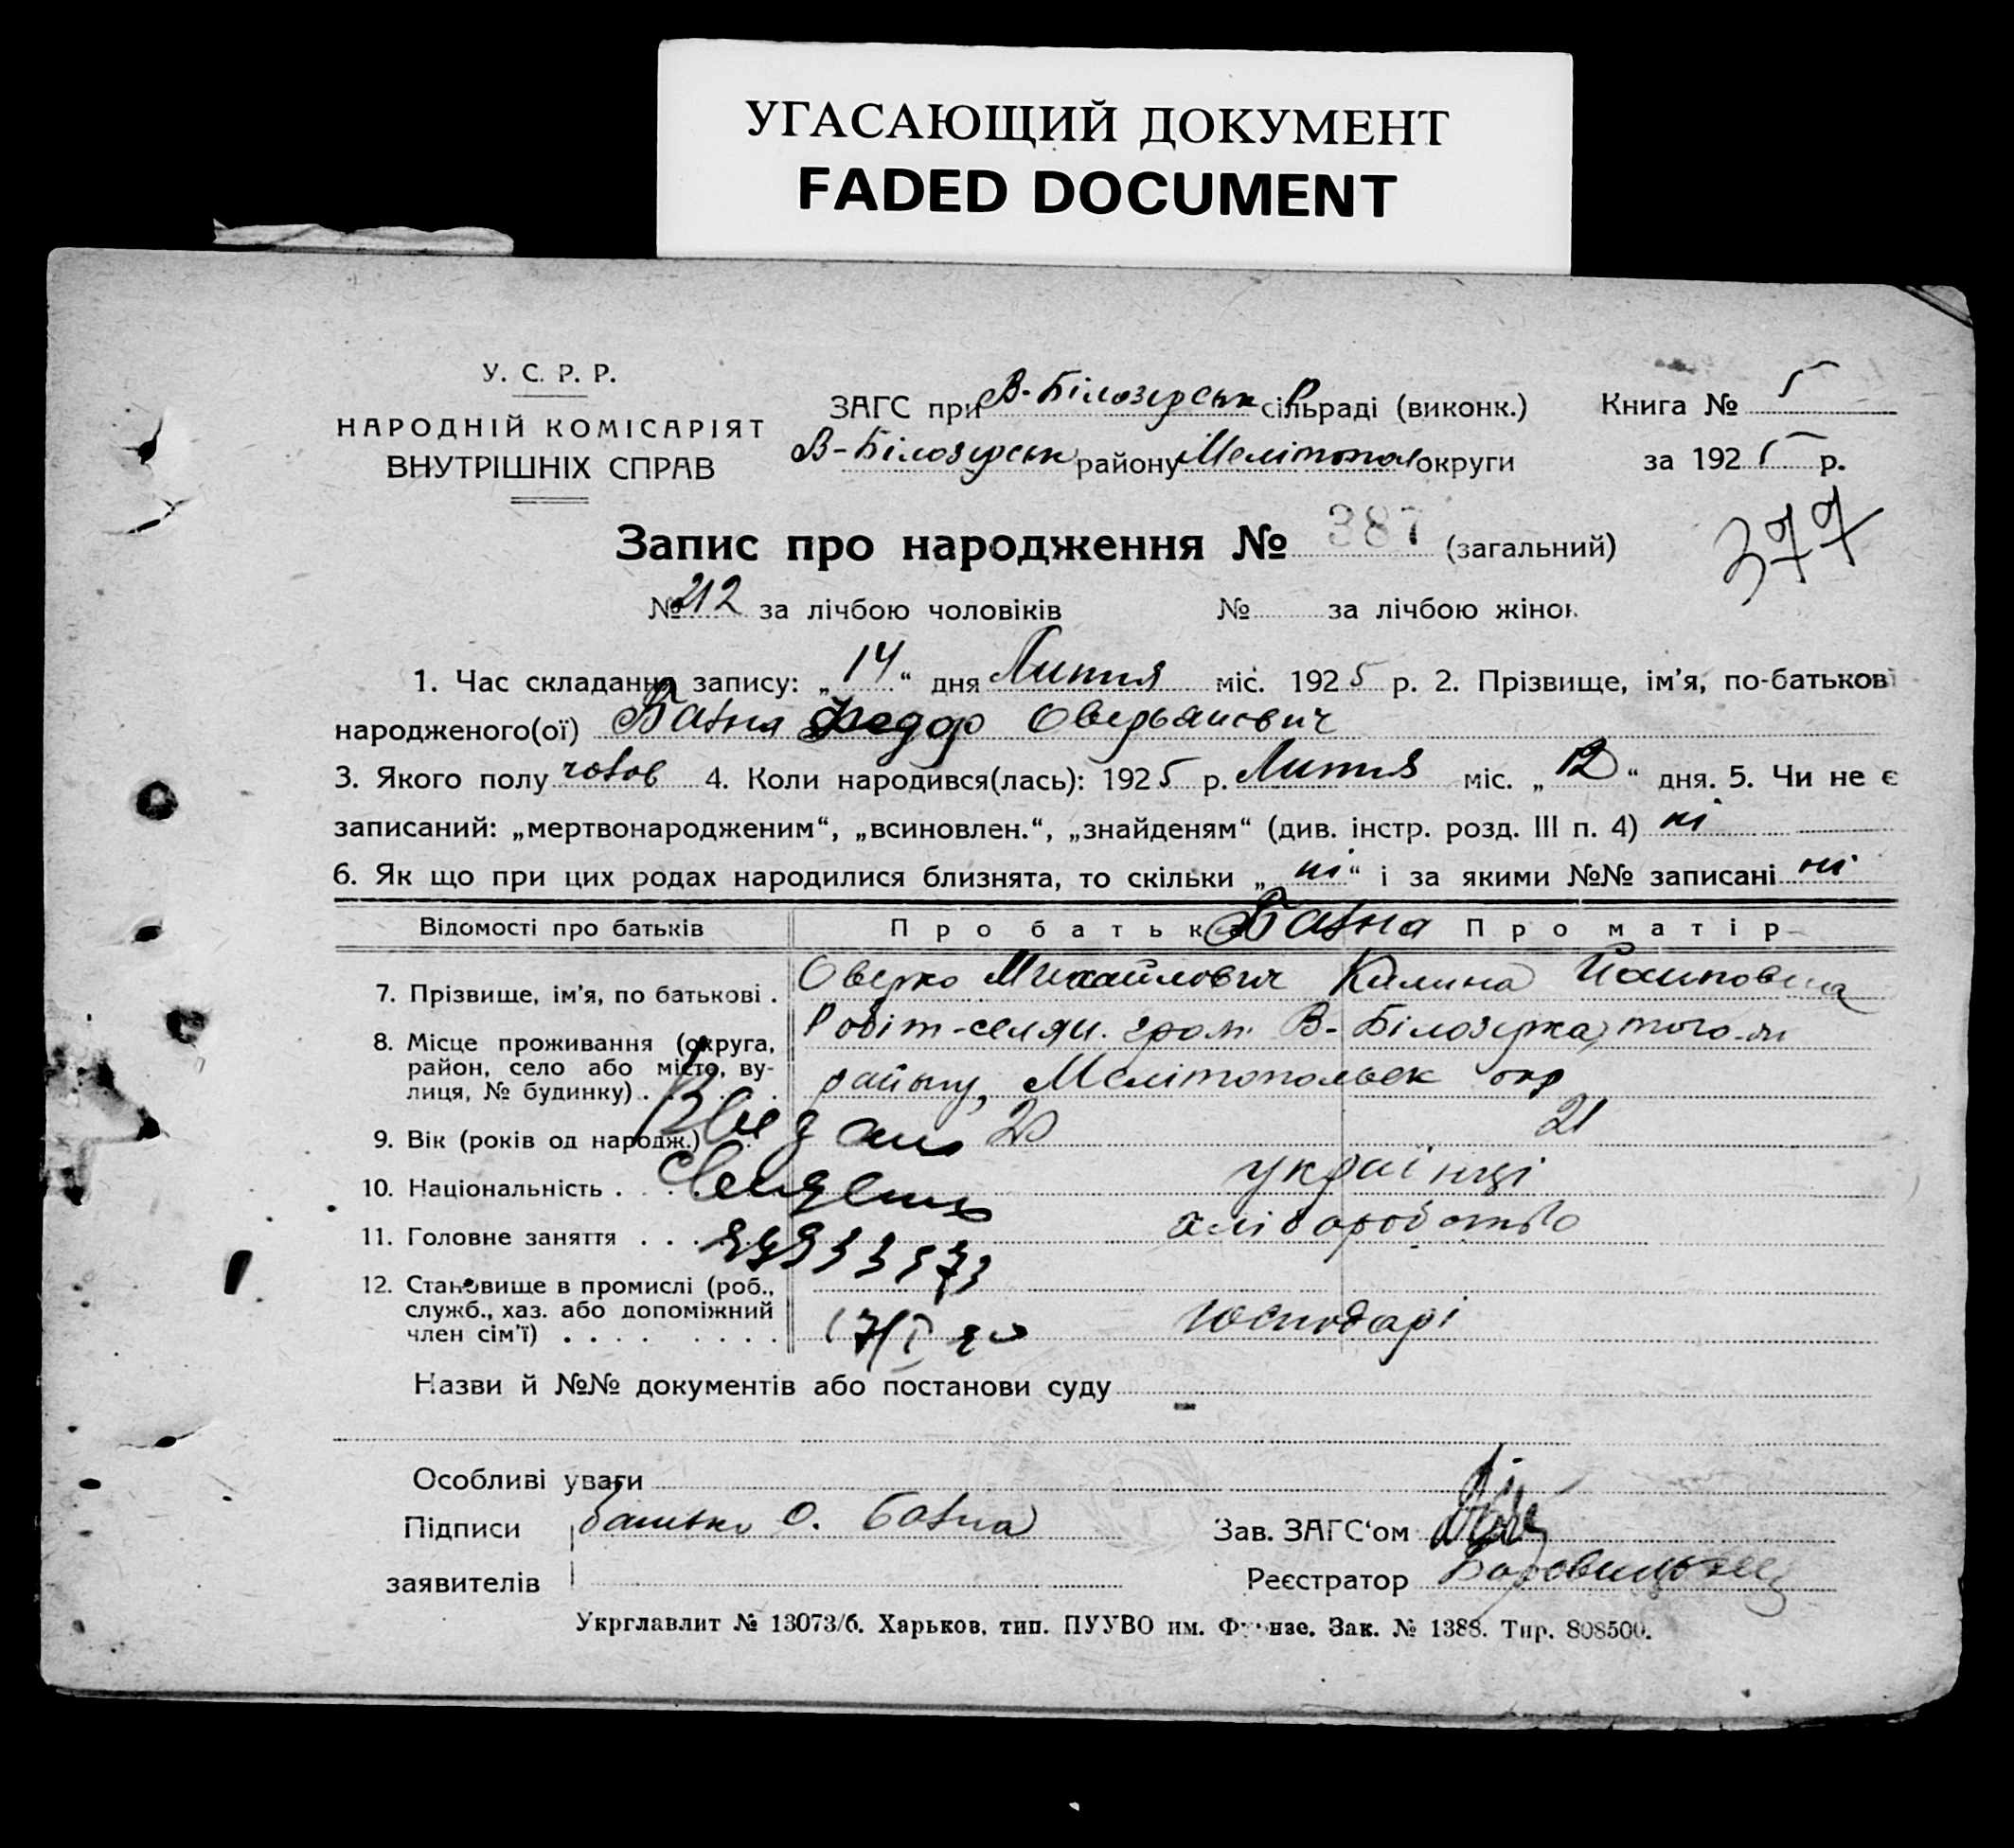 УГАСАЮЩИЙ ДОКУМЕНТ
FADED DOCUMENT
У. С. Р. Р.
НАРОДНІЙ КОМІСАРІЯТ
ВНУТРІШНІХ СПРАВ
ЗАГС при В-Білозерськ сільраді (виконк.)
В-Білозерськ району Мелітопол округи
Книга № 5
за 1925 р.
Запис про народження № 387 (загальний)
377
№ 212 за лічбою чоловіків № за лічбою жінок
1. Час складання запису: „14“ дня Липня міс. 1925 р. 2. Прізвище, ім'я, по-батькові
народженого(ої) Федор Оверьянович
3. Якого полу чолов 4. Коли народився(лась): 1925 р. Липня міс. „12“ дня. 5. Чи не є
записаний: „мертвонародженим“, „всиновлен.“, „знайденям“ (див. інстр. розд. III п. 4) ні
6. Як що при цих родах народилися близнята, то скільки „ні“ і за якими №№ записані ні
Відомості про батьків Про батька Про матір
7. Прізвище, ім'я, по батькові . Оверко Михайлович Килина
8. Місце проживання (округа, район, село або місто, вулиця, № будинку) . Робіт-селян. гром. В-Білозерка, того-ж
району, Мелітопольск окр
9. Вік (років од народж.) 20 21
10. Національність . українці
11. Головне заняття . . . хліборобство
12. Становище в промислі (роб., служб., хаз. або допоміжний член сім'ї) . . . . господарі
Видано
Назви й №№ документів або постанови суду -
Особливі уваги
Підписи батько О.
заявителів
Зав. ЗАГС'ом
Реєстратор
Укрглавлит № 13073/б. Харьков. тип. ПУУВО им. Фрунзе. Зак. № 1388. Тир. 808500.